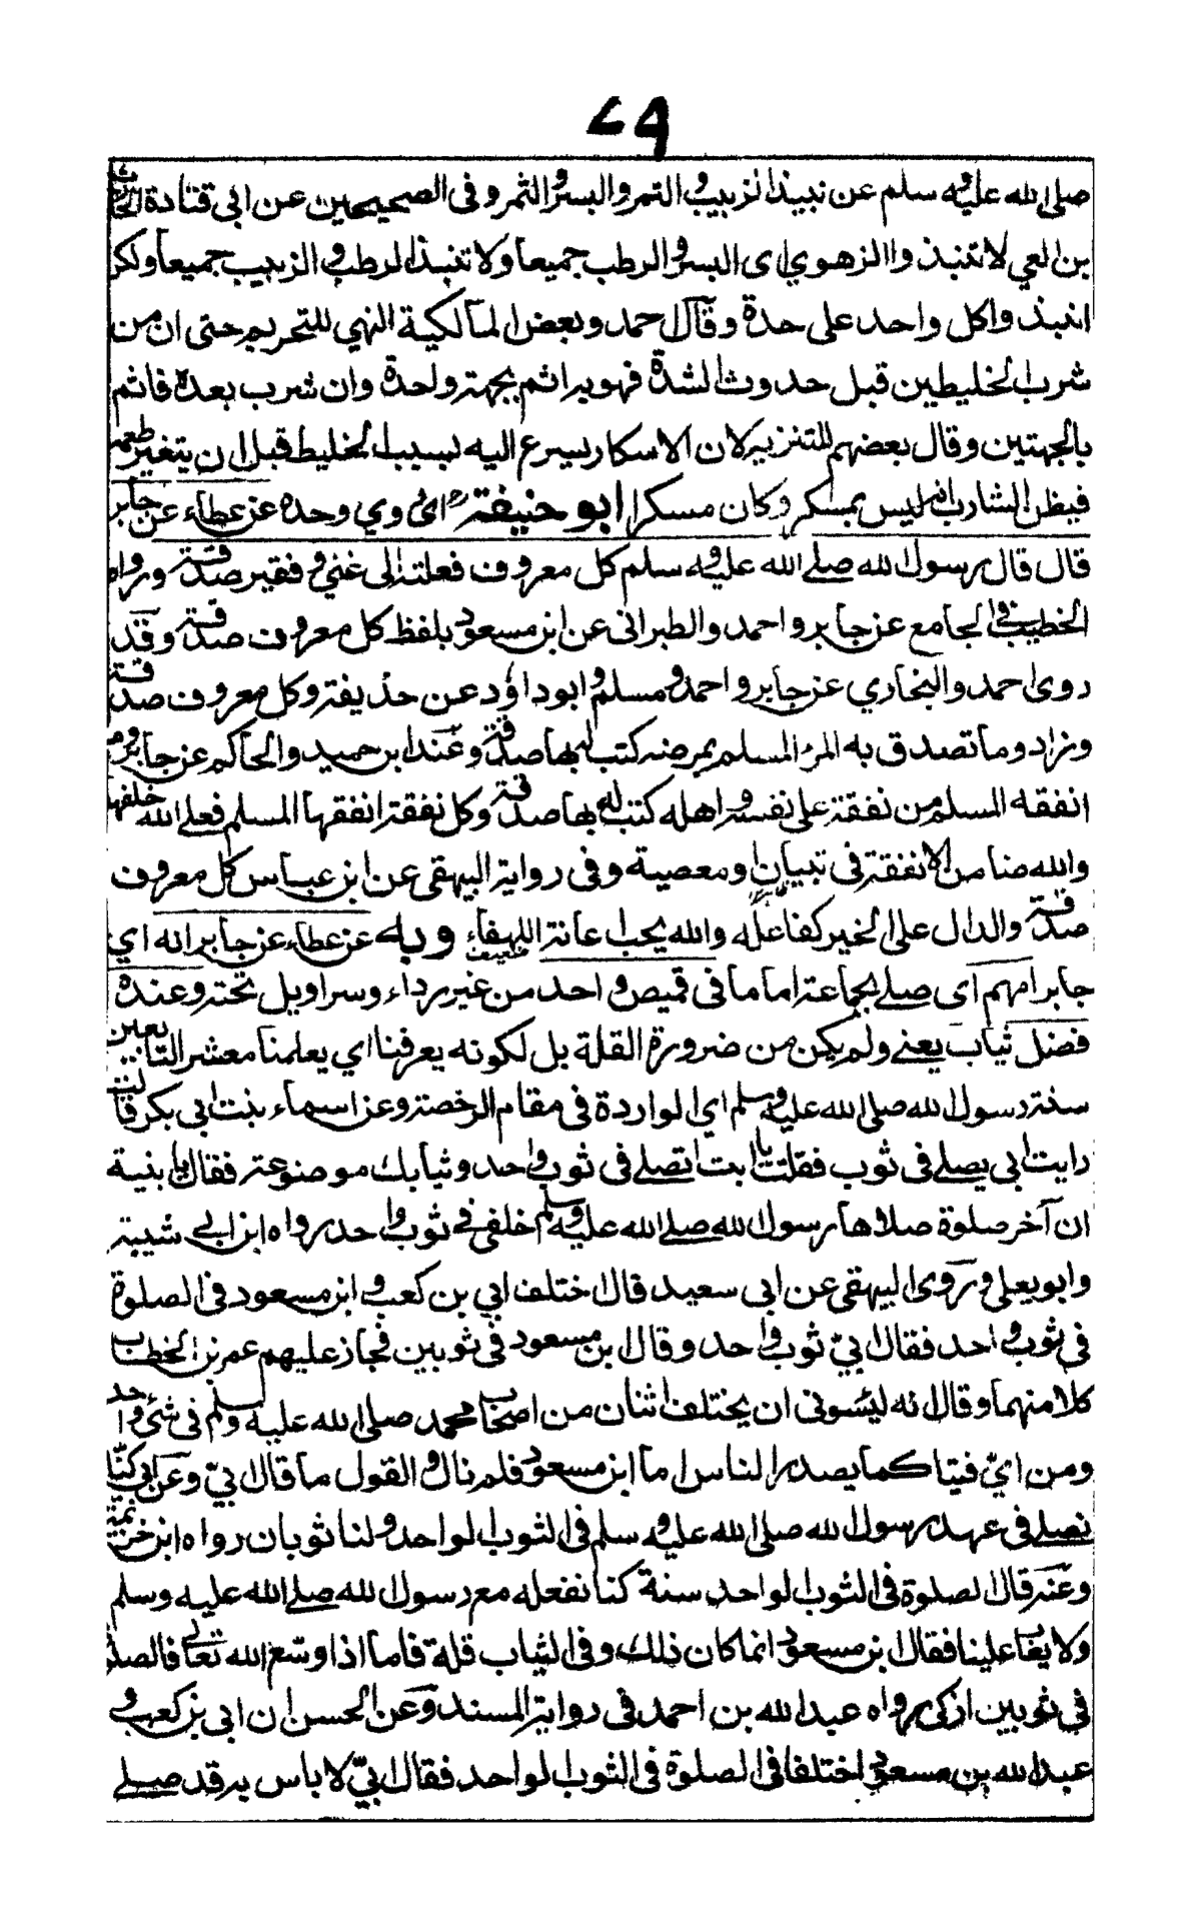 ٧٩
صلى الله عليه وسلم عن نبيذ الزبيب والتمر والبسر والتمر وفى الصحيحين عن ابى قتادة الحارث
بن ربعي لا تنبذوا الزهو اى البسر والرطب جميعا ولا تنبذوا الرطب والزبيب جميعا ولكن
انبذوا كل واحد على حدة وقال احمد وبعض المالكية النهي للتحريم حتى ان من
شرب الخليطين قبل حدوث الشدة فهو يراثم بجهة واحدة وان شرب بعده فاثم
بالجهتين وقال بعضهم للتنزيه لان الاسكار يسرع اليه بسبب الخليط قبل ان يتغير طعمه
فيظن الشارب انه ليس بمسكر وكان مسكرا ابو حنيفة اى روي وحده عن عطاء عن جابر
قال قال رسول الله صلے الله عليه وسلم كل معروف فعلته الى غني وفقير صدقة ورواه
الخطيب فى الجامع عن جابر واحمد والطبرانى عن ابن مسعود بلفظ كل معروف صدقة وقد
روى احمد والبخاري عن جابر واحمد ومسلم وابو داؤد عن حذيفة وكل معروف صدقة
وزاد وما تصدق به المرء المسلم عرضه كتب له بها صدقة وعند ابن حميد والحاكم عن جابر وما
انفقه المسلم من نفقة على نفسه واهله كتب له بها صدقة وكل نفقة انفقها المسلم فعلے الله خلفها
والله ضامن الا نفقة فى بنيان ومعصية وفى رواية البيهقى عن ابن عباس كل معروف
صدقة والدال على الخير كفاعله والله يحب اعانة اللهفاء وبه عن عطاء عن جابر انه اي
جابر امهم اى صلے بجماعة اماما فى قميص واحد من غير رداء وسراويل تحته وعنده
فضل ثياب يعنے ولم يكن من ضرورة القلة بل لكونه يعرفنا اي يعلمنا معشر التابعين
سنة رسول الله صلى الله عليه وسلم اي الواردة فى مقام الرخصة وعن اسماء بنت ابى بكر قالت
رايت ابى يصلے فى ثوب فقلت يا ابت اتصلے فى ثوب واحد وثيابك موضوعة فقال يا بنية
ان آخر صلوة صلاها رسول الله صلے الله عليه وسلم خلفى فے ثوب واحد رواه ابن ابے شيبة
وابو يعلى وروى البيهقى عن ابى سعيد قال اختلف ابي بن كعب وابن مسعود فى الصلوة
فى ثوب واحد فقال ابيّ ثوب واحد وقال ابن مسعود فى ثوبين فجاز عليهم عمر بن الخطاب
كلا منهما وقال انه ليسوئنى ان يختلف اثنان من اصحاب محمد صلى الله عليه وسلم فى شئ واحد
ومن ايّ فتياكما يصدر الناس اما ابن مسعود فلم نال والقول ما قال ابيّ وعن ابى كنّا
نصلے فى عهد رسول الله صلى الله عليه وسلم فى الثوب الواحد ولنا ثوبان رواه ابن خزيمة
وعنه قال الصلوة فى الثوب الواحد سنة كنا نفعله مع رسول الله صلے الله عليه وسلم
ولا يعاب علينا فقال ابن مسعود انما كان ذلك وفى الثياب قلة فاما اذا وسّع الله تعالى فالصلوة
فى ثوبين ازكى رواه عبد الله بن احمد فى رواية المسند وعن الحسن ان ابى بن كعب و
عبد الله بن مسعود اختلفا فى الصلوة فى الثوب الواحد فقال ابيّ لا باس به قد صلے